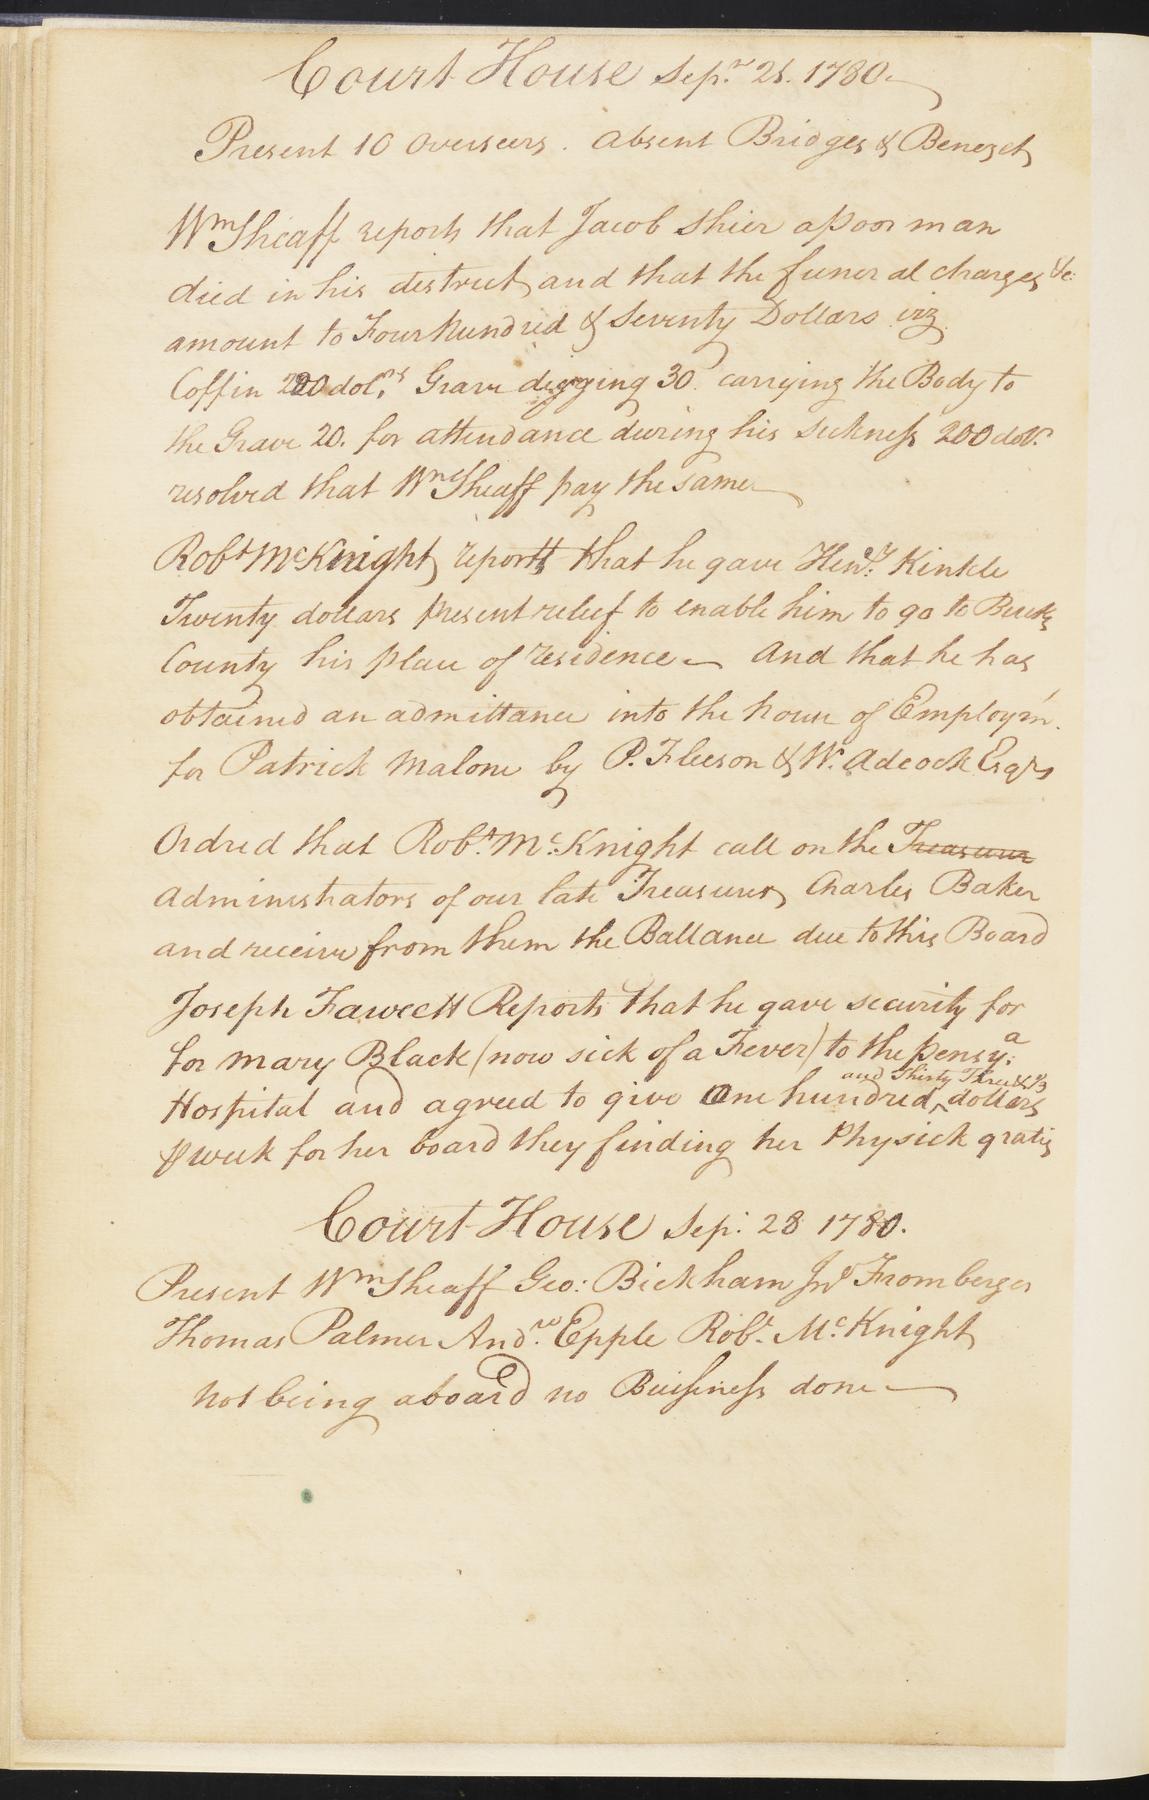 Court House Sepr. 21. 1780.
Present 10 Overseers. absent Bridges & Benezet
Wm Sheaff reports that Jacob Shier a poor man
died in his district and that the funeral charges &c:
amount to Four hundred & Seventy Dollars viz
Coffin 220 dolrs. Grave digging 30. carrying the Body to
the Grave 20. for attendance during his Sickness 200 dolr.
resolved that Wm Sheaff pay the same
Robt McKnight reports that he gave Henry. Kinkle
Twenty dollars present relief to enable him to go to Bucks
County his place of residence — And that he has
obtained an admittance into the house of Employm.
for Patrick Malone by P. Fleeson & W. Adcock Esqrs
Ordred that Robt. Mc. Knight call on the Treasurer
administrators of our late Treasurer, Charles Baker
and receive from them the Ballance due to this Board
Joseph Fawcett Reports that he gave security for
for Mary Black (now sick of a Fever) to the Pensya:
and Thirty Three & ⅓
Hospital and agreed to give One hundred ‸ dollars
⅌ week for her board they finding her Physick gratis
Court House Sep: 28 1780.
Present Wm Sheaff Geo: Bickham Jno Fromberger
Thomas Palmer Andrw. Epple Robt. Mc.Knight
not being a board no Buissness done —